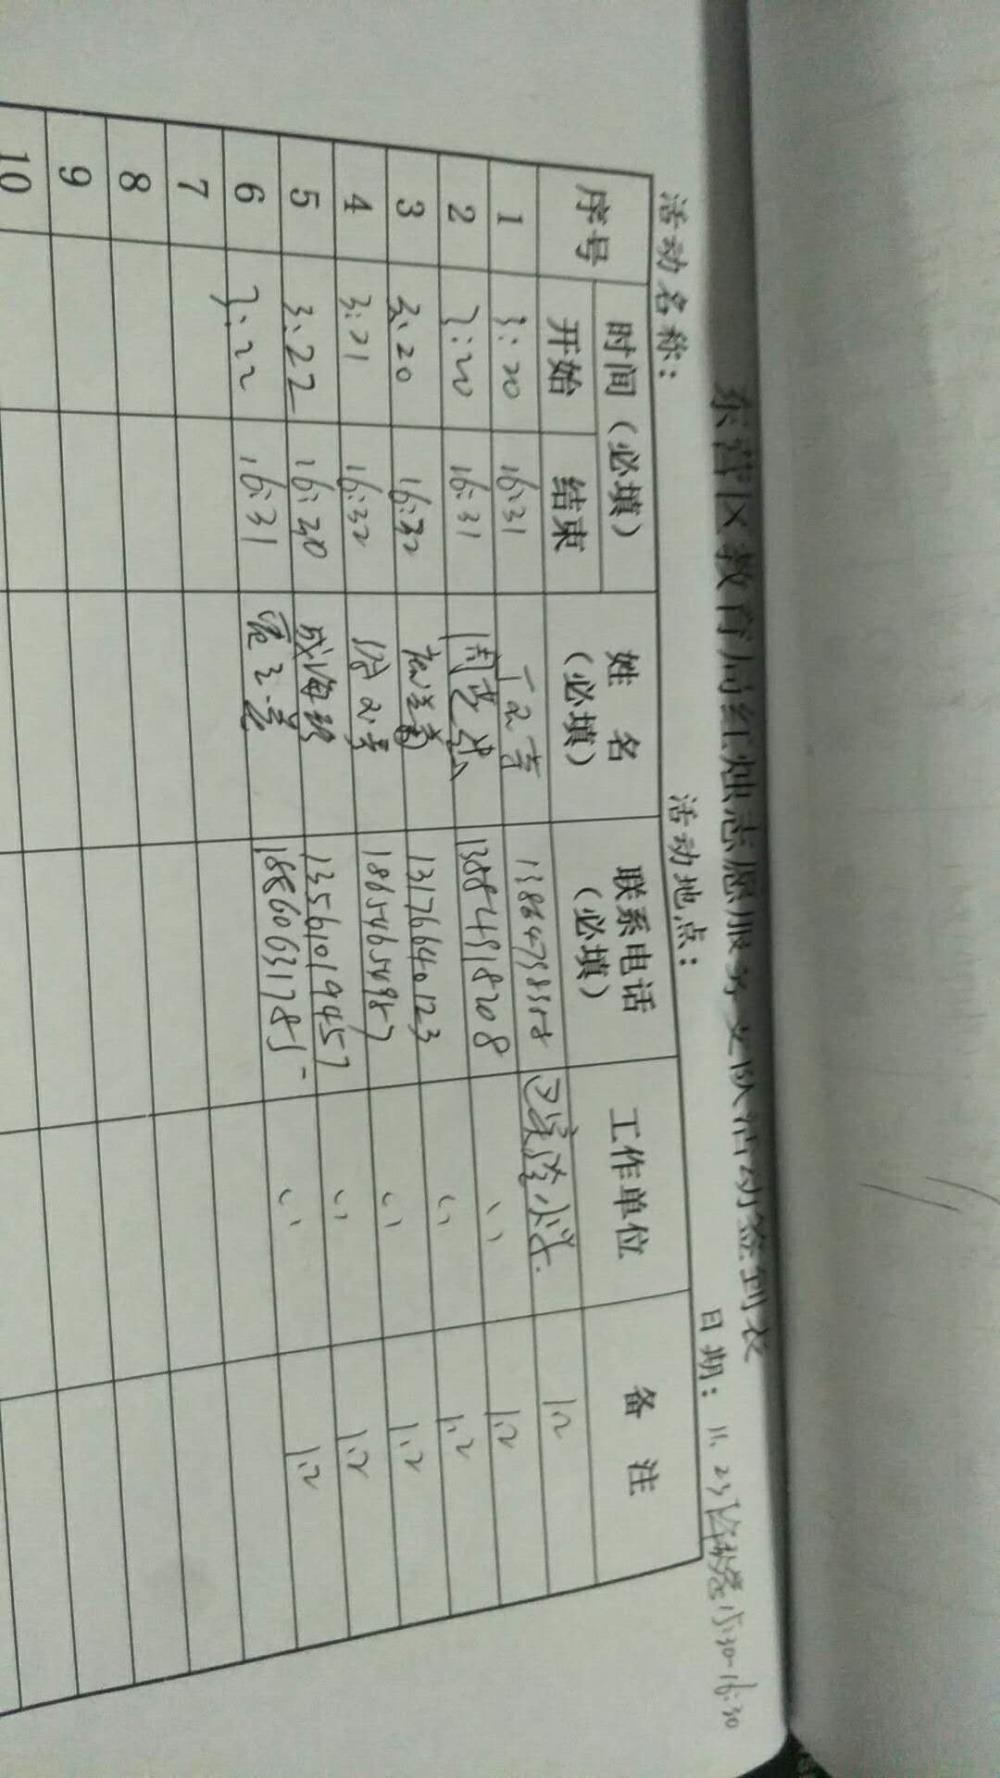 东营区教育局红烛志愿服务支队活动签到表
活动名称： 活动地点： 日期：11.23 15:30-16:30
序号 时间（必填） 姓 名（必填） 联系电话（必填） 工作单位 备 注
开始 结束
1 3:20 16:31 1.2
2 3:20 16:31 13884918208 〃 1.2
3 3:20 16:32 13176640123 〃 1.2
4 3:21 16:32 18654654987 〃 1.2
5 3:22 16:30 成海 13561019457 〃 1.2
6 3:22 16:31 18860631785 〃 1.2
7
8
9
10